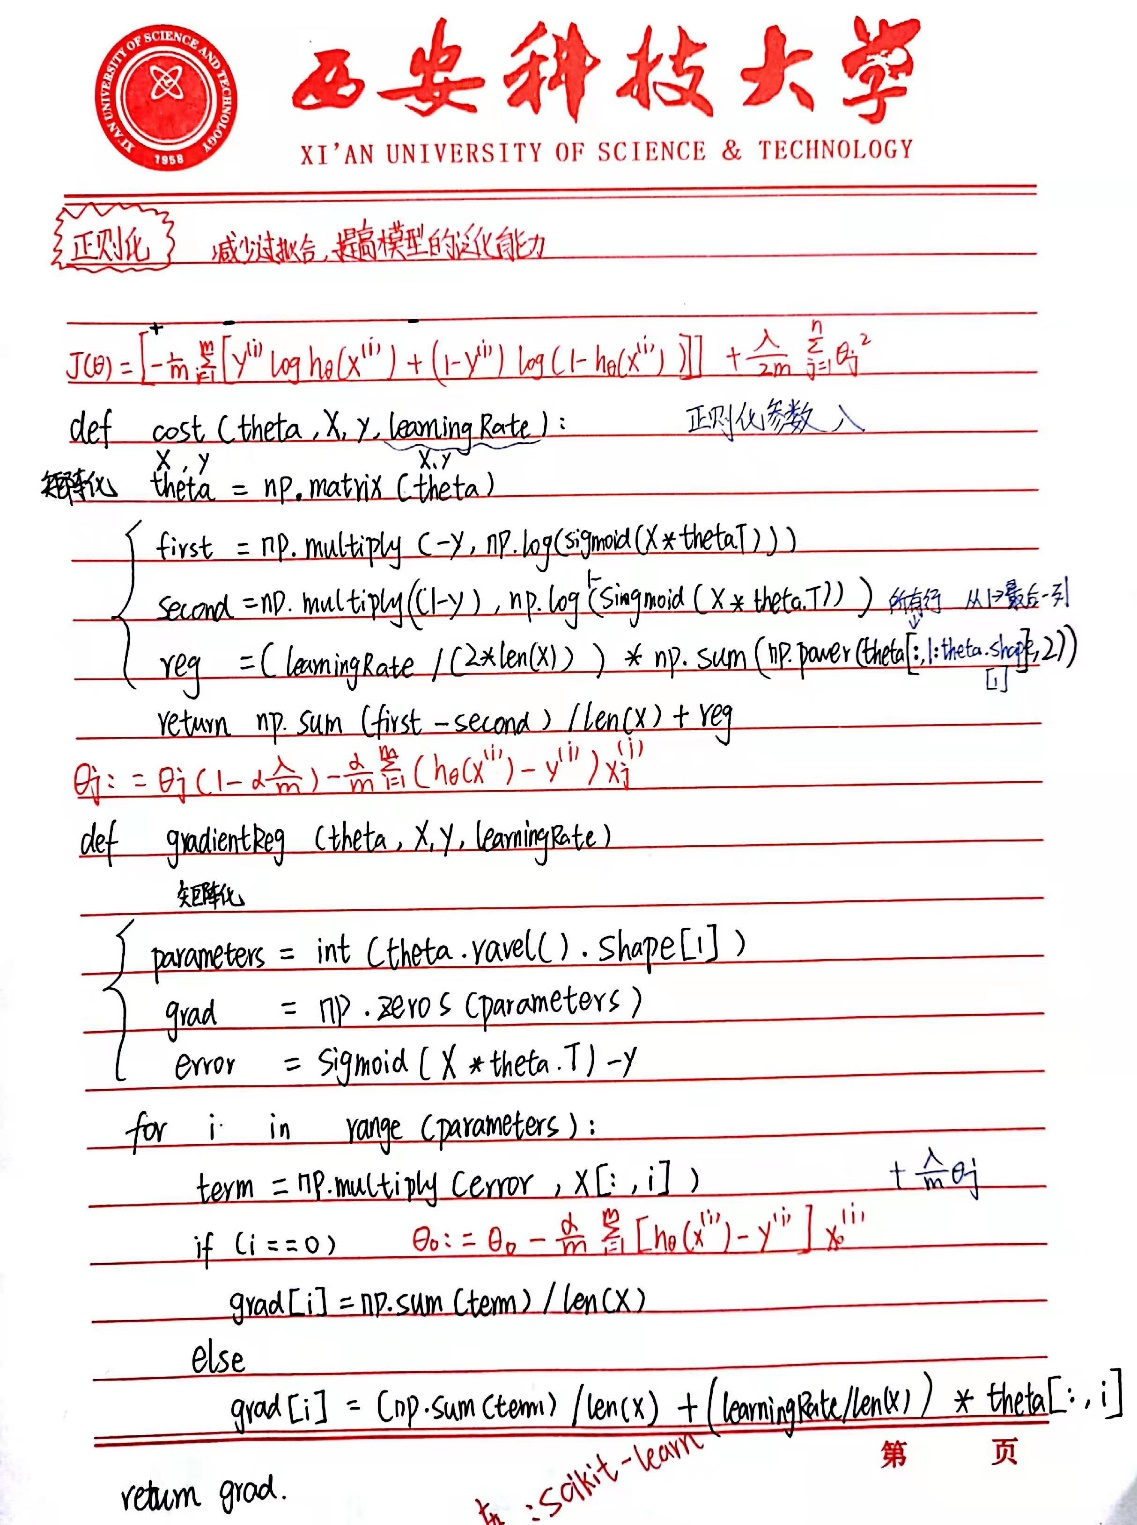 XI'AN UNIVERSITY OF SCIENCE AND TECHNOLOGY
1958
西安科技大学
XI'AN UNIVERSITY OF SCIENCE & TECHNOLOGY
正则化 减少过拟合,提高模型的泛化能力
+ - -
J(θ) = [-1/m Σ_{i=1}^{m} [y^{(i)} log hθ(x^{(i)}) + (1-y^{(i)}) log(1-hθ(x^{(i)}))]] + λ/2m Σ_{j=1}^{n} θj²
def cost (theta, X, Y, learningRate): 正则化参数 λ
X, Y X, Y
矩阵化 theta = np.matrix (theta)
first = np.multiply (-Y, np.log(sigmoid(X*theta.T)))
second = np.multiply((1-y), np.log(1-Singmoid(X*theta.T))) 所有行 从1→最后一列
reg = (learningRate /(2*len(X))) * np.sum(np.power(theta[:,1:theta.shape[1]],2))
return np.sum (first - second) /len(x) + reg
θj := θj(1-αλ/m) - α/m Σ_{i=1}^{m} (hθ(x^{(i)}) - y^{(i)}) xj^{(i)}
def gradientReg (theta, X, Y, learningRate)
矩阵化
parameters = int (theta.ravel().shape[1])
grad = np.zeros (parameters)
error = sigmoid (X *theta.T) -Y
for i in range (parameters):
term = np.multiply (error, X[:,i]) + λ/m θj
if (i==0) θ0 := θ0 - α/m Σ_{i=1}^{m} [hθ(x^{(i)}) - y^{(i)}] x0^{(i)}
grad[i] = np.sum (term) / len(X)
else
grad [i] = (np.sum (term) /len(x) + (learningRate/len(x)) * theta[:,i]
第 页
return grad.
:scikit-learn